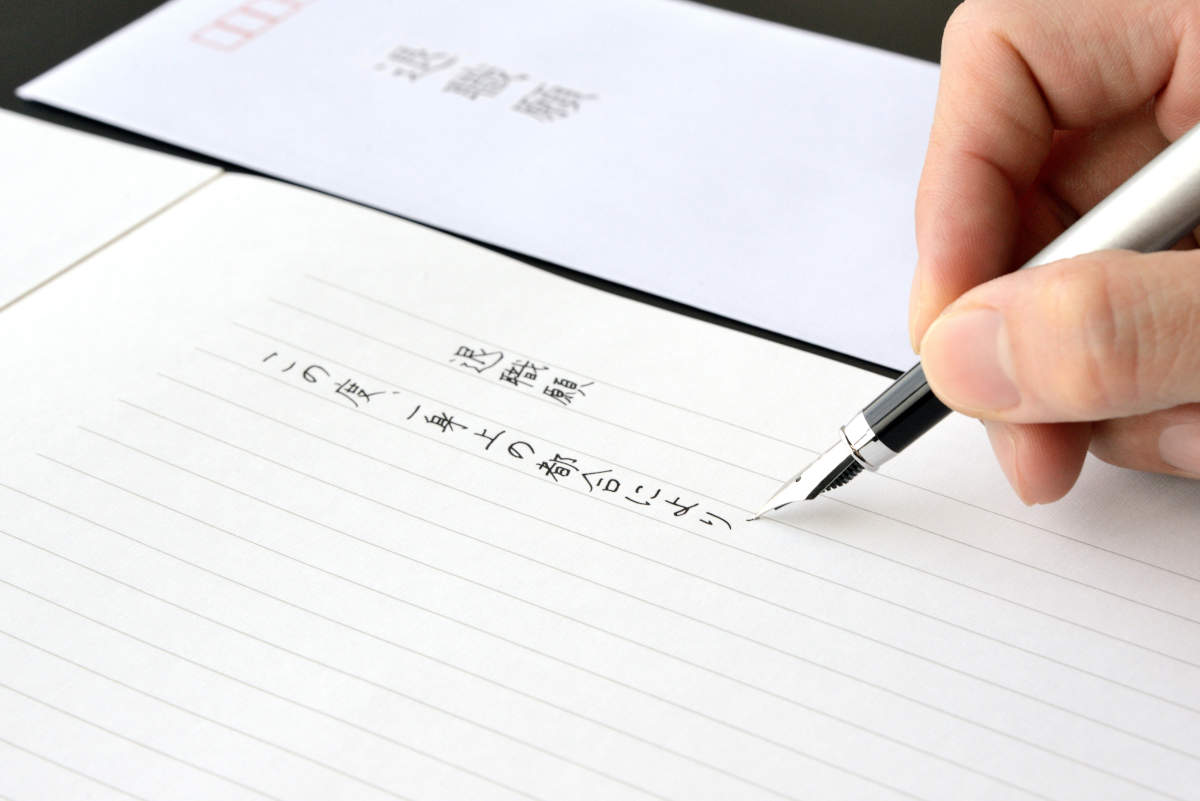 退職願
退職願
この度、一身上の都合により